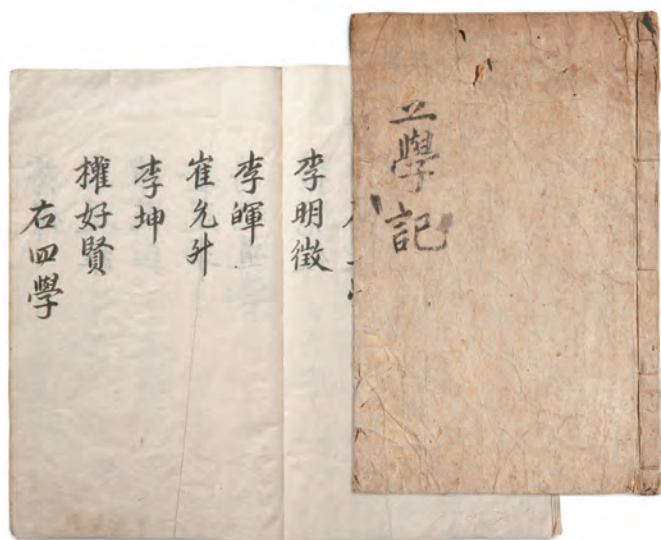 學記
李明徵
李暉
崔允升
李坤
權好賢
右四學